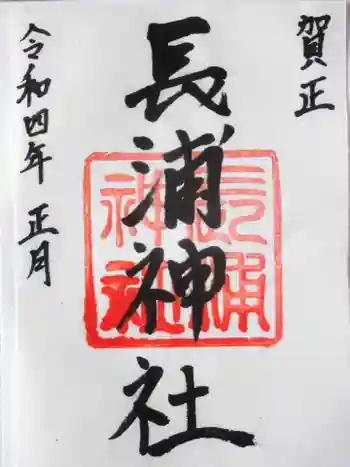 賀正
長浦神社
長浦神社
令和四年 正月